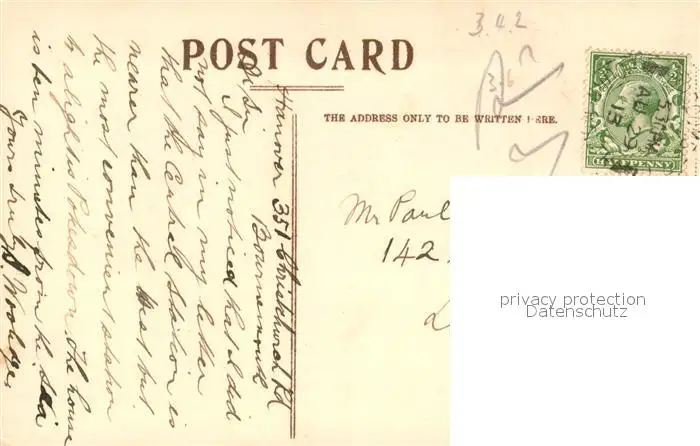 3.4.2
POST CARD
THE ADDRESS ONLY TO BE WRITTEN HERE.
HALFPENNY
Hanover 351 Christchurch Rd
Bournemouth
Dr Sir
I just noticed that I did
not say in my letter
that the Central Station is
nearer than the West but
the most convenient station
to alight is Pokesdown The house
is ten minutes from the Sea
Yours truly
Mr Paul
142
privacy protection
Datenschutz